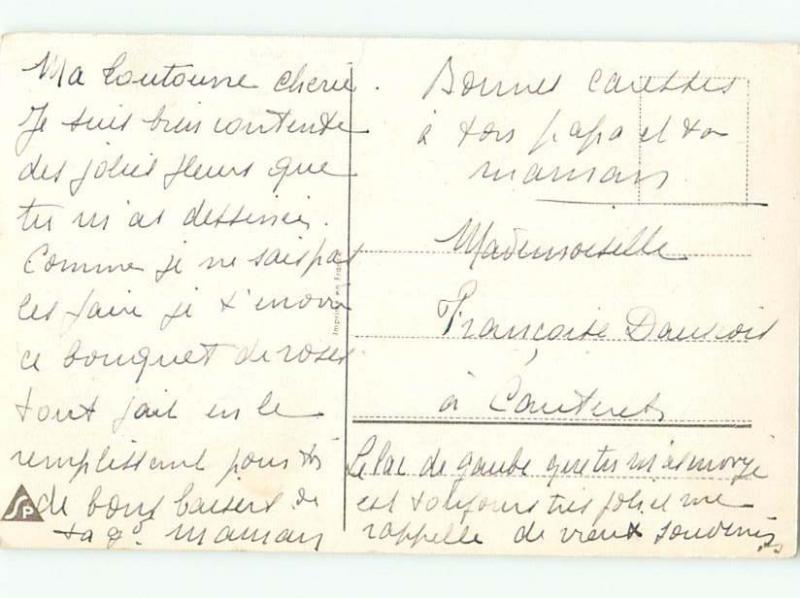 Ma Toutoune cherie.
Je suis bien contente
des jolies fleurs que
tu m'as dessinées.
Comme je ne sais pas
les faire je t'envoie
ce bouquet de roses
tout fait en le
remplissant pour toi
de bons baisers de
ta gd. maman
Imprimé en France
SP
Bonnes caresses
à ton papa et ta
maman
Mademoiselle
Françoise
à Cauterets
Le lac de gaube que tu m'as envoyé
est toujours très joli et me
rappelle de vieux souvenirs